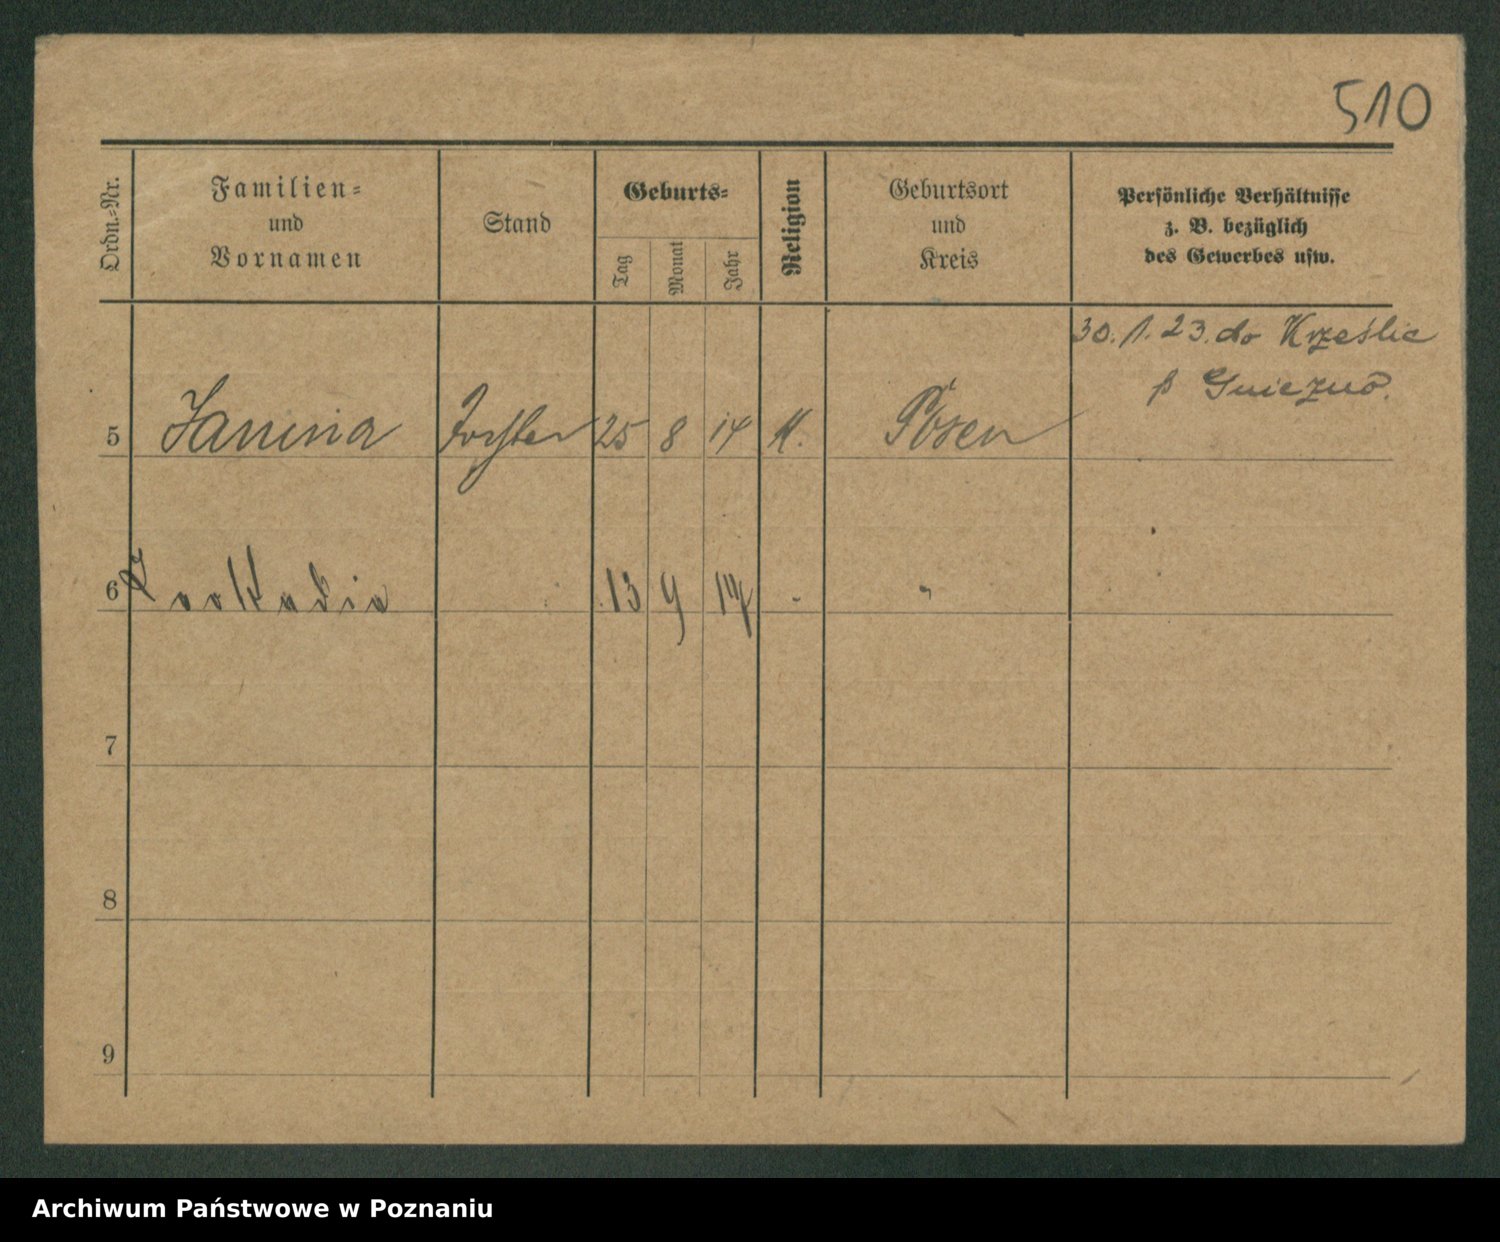 510
Ordn.=Nr.
Familien=
und
Vornamen
Stand
Geburts=
Tag
Monat
Jahr
Religion
Geburtsort
und
Kreis
Persönliche Verhältnisse
z. B. bezüglich
des Gewerbes usw.
30. 1. 23. do Krześlic
p Gniezno.
5 Janina Tochter 25 8 14 K. Posen
6 13 9 14 - "
7
8
9
Archiwum Państwowe w Poznaniu